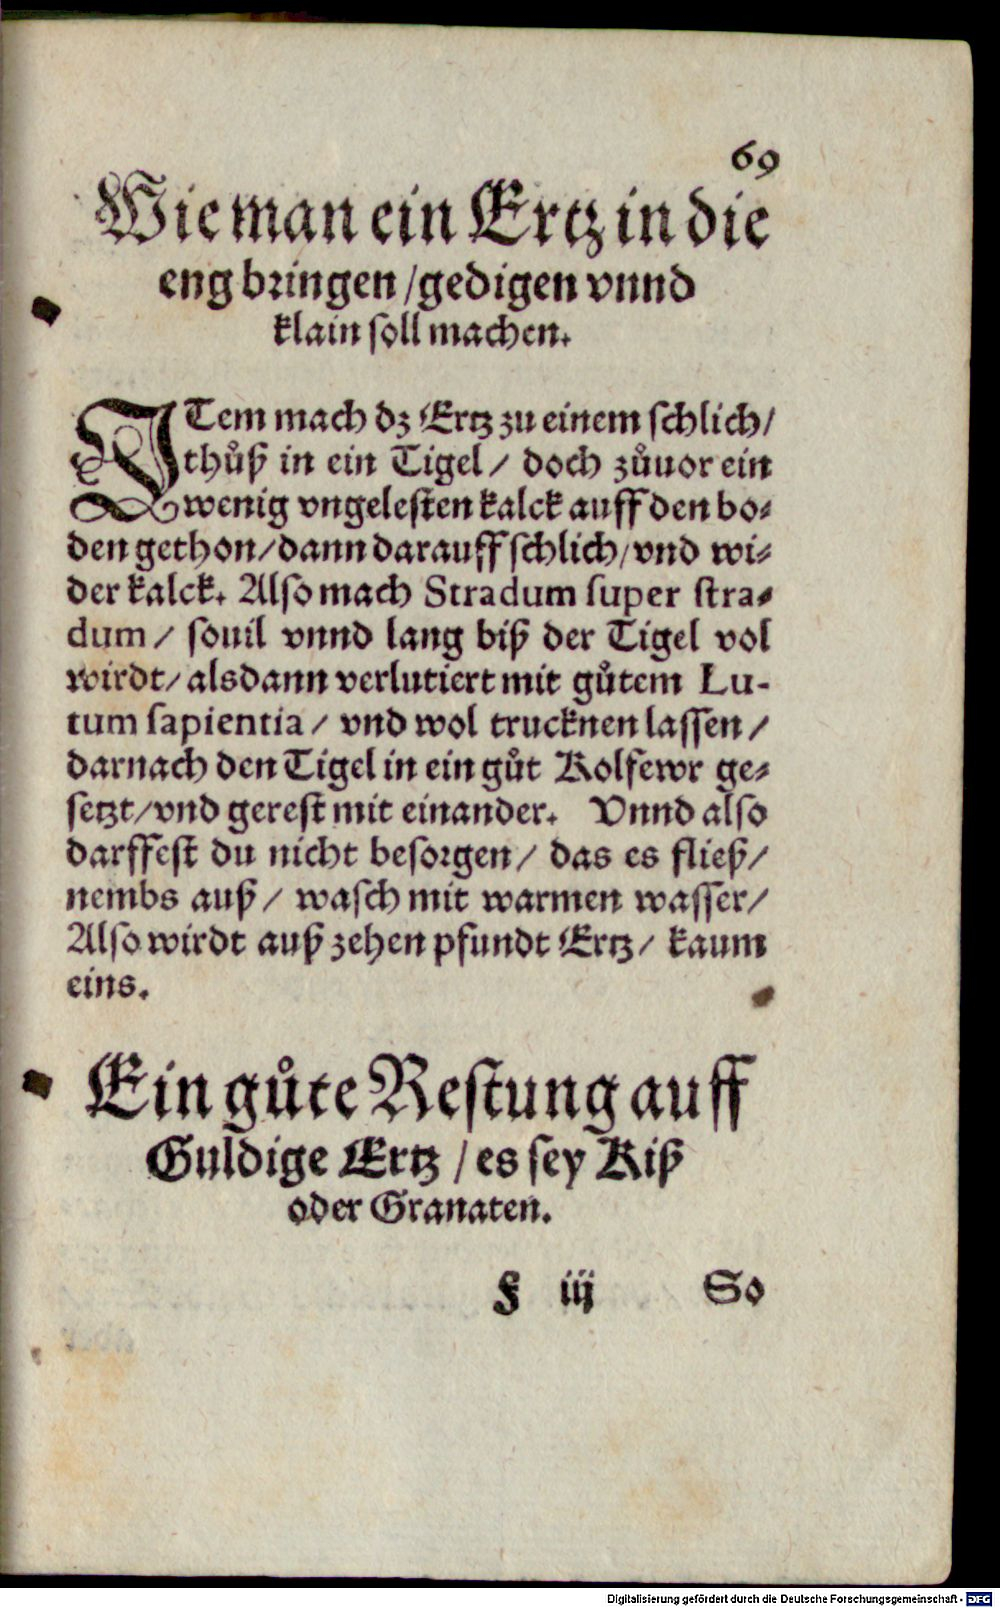 69
Wie man ein Ertz in die
eng bringen / gedigen vnnd
klain soll machen.
ITem mach dz Ertz zu einem schlich /
thůß in ein Tigel / doch zůuor ein
wenig vngelesten kalck auff den bo⸗
den gethon / dann darauff schlich / vnd wi⸗
der kalck. Also mach Stradum super stra⸗
dum / souil vnnd lang biß der Tigel vol
wirdt / alsdann verlutiert mit gůtem Lu-
tum sapientia / vnd wol trucknen lassen /
darnach den Tigel in ein gůt Kolfewr ge⸗
setzt / vnd gerest mit einander. Vnnd also
darffest du nicht besorgen / das es fließ /
nembs auß / wasch mit warmen wasser /
Also wirdt auß zehen pfundt Ertz / kaum
eins.
Ein gůte Restung auff
Guldige Ertz / es sey Kiß
oder Granaten.
F iij So
Digitalisierung gefördert durch die Deutsche Forschungsgemeinschaft - DFG